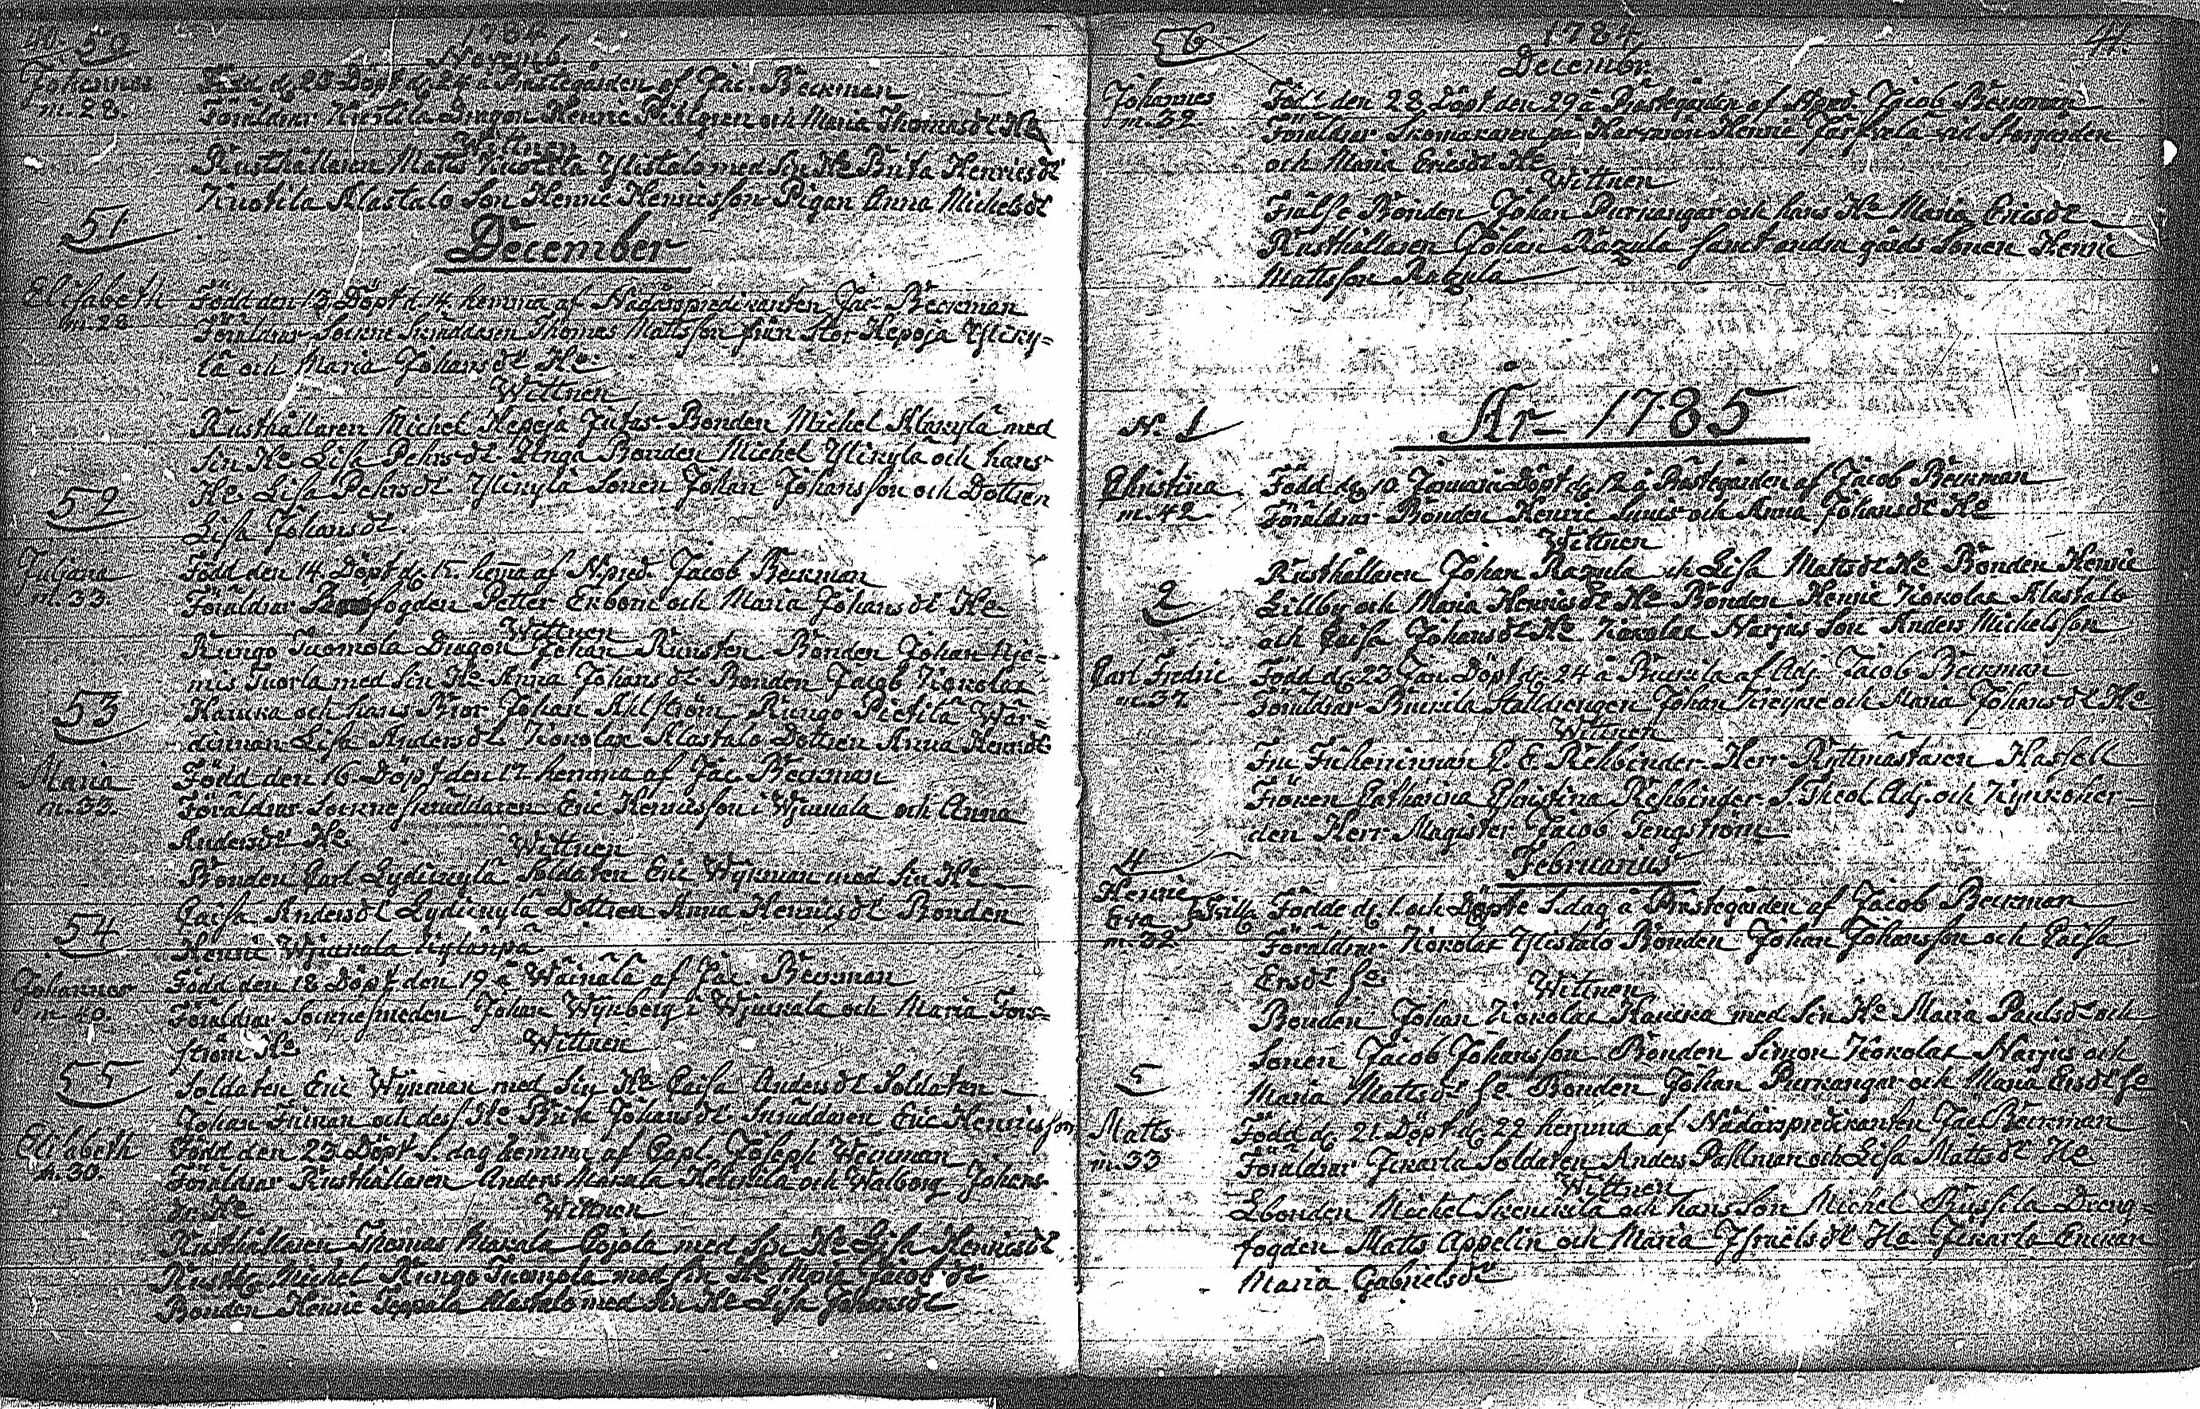 40.
50
1784
Novemb.
Johannes
m. 28.
Född d. 23 Döpt d. 24 å Prästegården af Jac. Beckman
Föräldrar Kiutila Dragon Henric Pihlgren och Maria Thomasdr He
Wittnen
Rusthållaren Matts Ylistalo med sin He Brita Henricsdr
Alastalo Son Henric Henricsson Pigan Anna Michelsdr
51
December
Elisabeth
m. 28
Född den 13. Döpt d. 14. hemma af Nådårspredikanten Jac. Beckman
Föräldrar Sockne Skräddaren Thomas Mattsson från Stor Hepoja Yliky=
lä och Maria Johansdr He.
Wittnen
Rusthållaren Michel Hepoja Jutas Bonden Michel Alikylä med
sin He Lisa Pehrsdr Unga Bonden Michel Ylikylä och hans
He Lisa Pehrsdr Ylikylä Sonen Johan Johansson och Dottren
Lisa Johansdr.
52
Juliana
m. 33.
Född den 14. Döpt d. 15. hema af Npred. Jacob Beckman
Föräldrar fogden Petter Ekbom och Maria Johansdr He
Wittnen
Rungo Tuomola Dragon Johan Runsten. Bonden Johan Nie=
mis Tuorla med sin He Anna Johansdr Bonden Jacob Kokolax
Kaukka och hans Bror Johan Ahlström Rungo Pietilä Wär=
dinnan Lisa Andersdr Kokolax Alastalo Dottren Anna Henricdr
53
Maria
m. 33.
Född den 16 Döpt den 17 hemma af Jac. Beckman
Föräldrar Sockneskräddaren Eric Henricsson i Wjukala och Anna
Andersdr He.
Wittnen
Bonden Carl Lydikylä Soldaten Eric Wijkman med sin He
Caisa Andersdr Lydikylä Dottren Anna Henricsdr Bonden
Henric Wjukala Kylänpä
54
Johannes
m. 40.
Född den 18 Döpt den 19 å Wäinälä af Jac. Beckman
Föräldrar Socknesmeden Johan Wijkberg i Wjukala och Maria Fors=
ström He
Wittnen
Soldaten Eric Wijkman med sin He Caisa Andersdr Soldaten
Johan Friman och des He Brita Johansdr Skräddaren Eric Henricsson
55
Elisabeth
m. 30.
Född den 23 Döpt s. dag hemma af Capl. Joseph Weckman
Föräldrar Rusthållaren Anders Markula och Walborg Johans-
dr. He
Wittnen
Rusthållaren Thomas Markula Cojola med sin He Lisa Henricsdr
Michel Rungo Tuomola med sin He Maria Jacobsdr
Bonden Henric Seppälä Alastalo med sin He Lisa Johansdr
41.
56
1784
Decembr.
Johannes
m. 32.
Född den 28 Döpt den 29 å Prästegården af Npred. Jacob Beckman
Föräldrar Skomakaren på Henric vid Storgården
och Maria Ericsdr He
Wittnen
Frälse Bonden Johan Purkangar och hans He Maria Ericsdr
Rusthållaren Johan Razula samt andra gårds Sonen Henric
Mattsson Razula
År 1785
No 1
Christina
m. 42
Född d. 10 Januarii Döpt d. 12 å Prästegården af Jacob Beckman
Föräldrar Bonden Henric och Anna Johansdr He
Wittnen
Rusthållaren Johan Razula och Lisa Mattsdr He Bonden Henric
Lillby och Maria Henricsdr He Bonden Henric Kokolax Alastalo
och Caisa Johansdr He Kokolax Narjus Son Anders Michelsson
2
Carl Fredric
m. 37.
Född d. 23 Jan. Döpt d. 24 å Brukila af Adj. Jacob Beckman
Föräldrar Brukila Stalldrengen Johan och Maria Johansdr He
Wittnen
Fru Friherrinnan C. E. Rehbinder Herr Ryttmästaren Hastfelt
Fröken Catharina Christina Rehbinder S. Theol. Adj. och Kyrkoher=
den Herr Magister Jacob Tengström
Februarius
4
Henric
Eva } Tvilla
m. 32
Födde d. 1. och Döpte s. dag å Prästegården af Jacob Beckman
Föräldrar Kokolax Ylistalo Bonden Johan Johansson och Caisa
Ersdr He
Wittnen
Bonden Johan Kokolax Kaukka med sin He Maria Paulsdr och
Sonen Jacob Johansson Bonden Simon Kokolax Narjus och
Maria Mattsdr He Bonden Johan Purkangar och Maria Ersdr He
5
Matts
m. 33
Född d. 21. Döpt d. 22 hemma af Nådårspredikanten Jac Beckman
Föräldrar Jikarla Soldaten Anders Pahlman och Lisa Mattsdr He
Wittnen
Bonden Michel och hans Son Michel Dreng=
fogden Matts Appelin och Maria Israelsdr He Jikarla Enkan
Maria Gabrielsdr